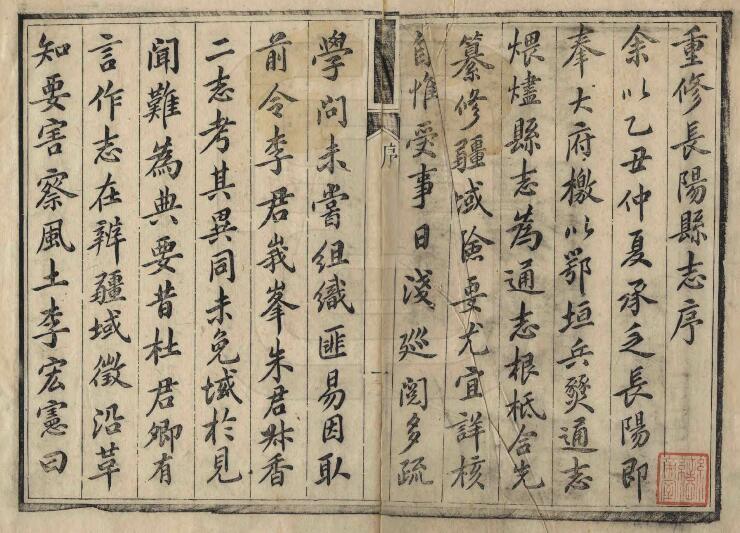 重修長陽縣志序
余以乙丑仲夏承乏長陽即
奉大府檄以鄂垣兵燹通志
煨燼縣志為通志根柢合先
纂修疆域險要尤宜詳核
自惟受事日淺廵閱多疏
序
學問未嘗組織匪易因取
前令李君峩峯朱君尗香
二志考其異同未免域於見
聞難為典要昔杜君卿有
言作志在辨疆域徵沿革
知要害察風土李宏憲曰